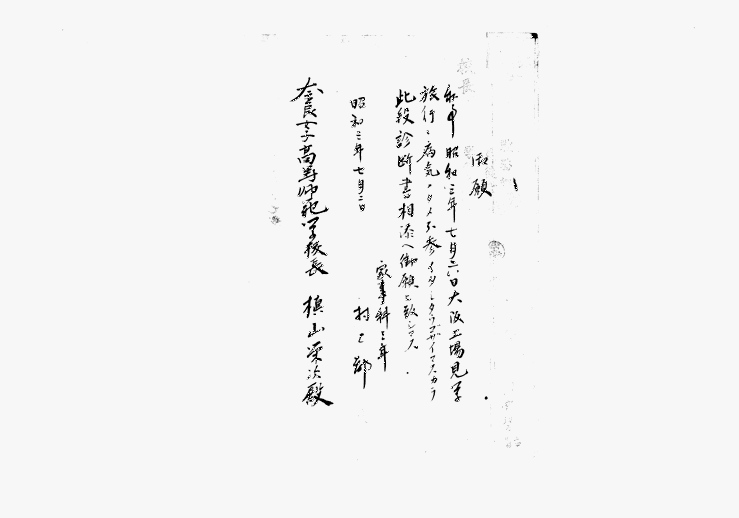 御願
私事昭和三年七月六日大阪工場見学
旅行ニ病気ノタメ不参イタシタウゴザイマスカラ
此段診断書相添ヘ御願ヒ致シマス
昭和三年七月三日
家事科三年
奈良女子高等師範学校長 槙山栄次殿